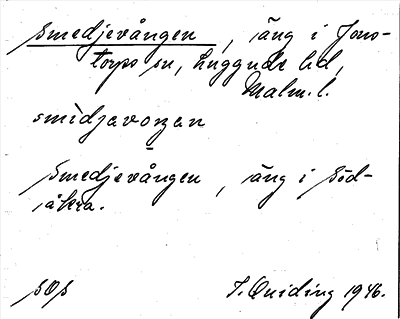 Smedjevången, äng i Jons-
torps sn, Luggude hd,
Malm. l.
smìdjavoŋan
Smedjevången, äng i Söd-
åkra.
SOS T. Quiding 1946.